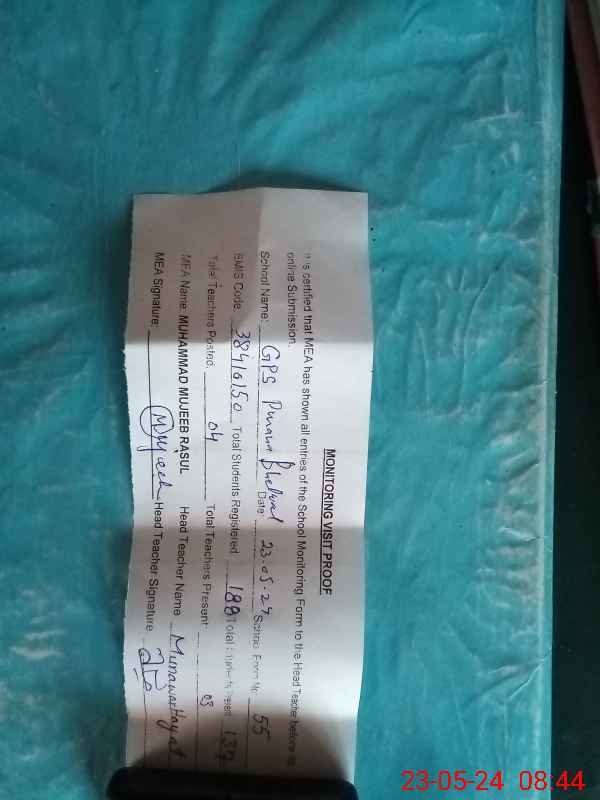 MONITORING VISIT PROOF
It is certified that MEA has shown all entries of the School Monitoring Form to the Head Teacher before
online Submission.
School Name: GPS Purana Bhelwal Date: 23-05-24 School Form No: 55
EMIS Code: 38410150 Total Students Registered: 188 Total Students Present: 137
Total Teachers Posted: 04 Total Teachers Present: 03
MEA Name: MUHAMMAD MUJEEB RASUL Head Teacher Name Munawar Hayat
MEA Signature: Mujeeb Head Teacher Signature
23-05-24 08:44